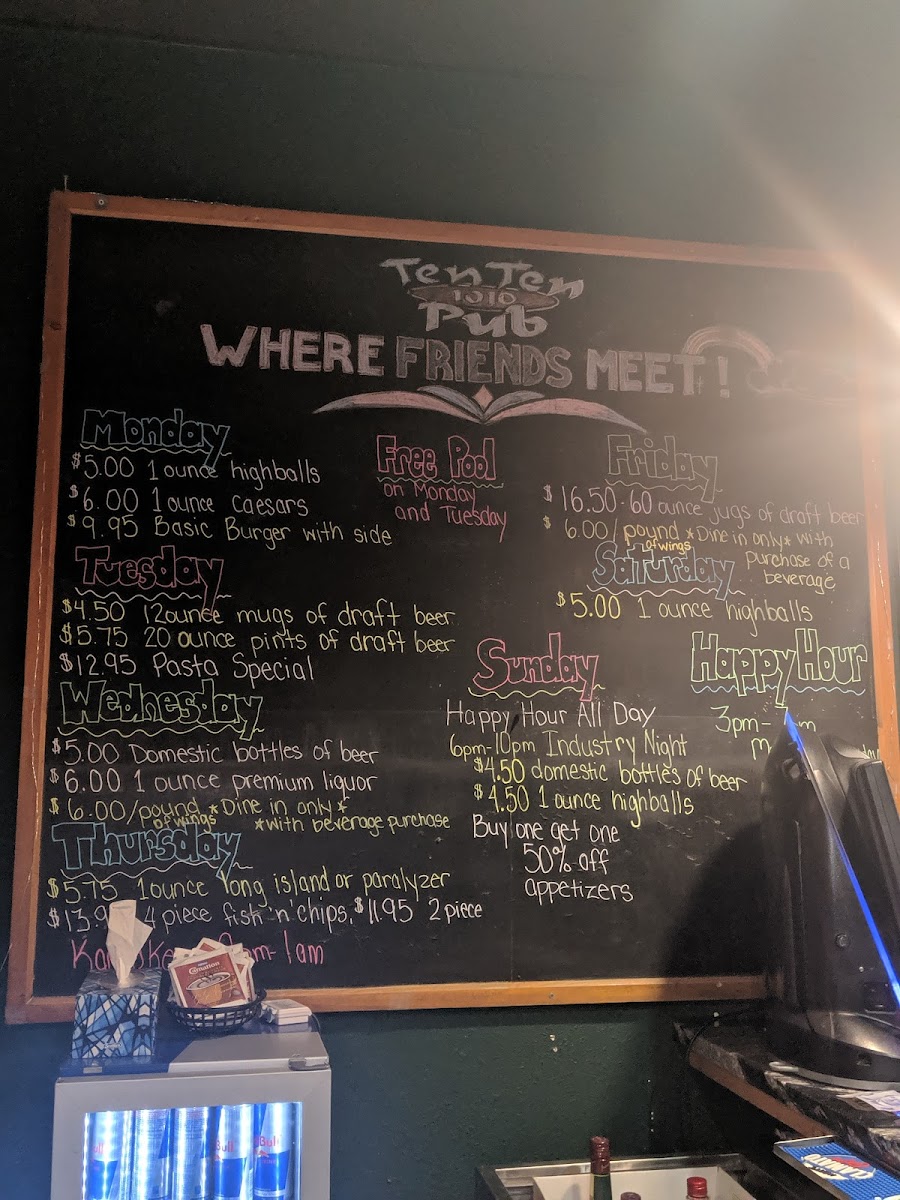 Ten Ten
1010
Pub
WHERE FRIENDS MEET!
Monday
$5.00 1 ounce highballs
$6.00 1 ounce caesars
$9.95 Basic Burger with side
Free Pool
on Monday
and Tuesday
Tuesday
$4.50 12ounce mugs of draft beer
$5.75 20 ounce pints of draft beer
$12.95 Pasta Special
Wednesday
$5.00 Domestic bottles of beer
$6.00 1 ounce premium liquor
$6.00/pound *Dine in only*
of wings *with beverage purchase
Thursday
$5.75 1ounce long island or paralyzer
4 piece fish 'n' chips, $11.95 2 piece
-1am
Friday
$16.50 · 60 ounce jugs of draft beer
$6.00/pound *Dine in only* with
of wings
purchase of a
beverage
Saturday
$5.00 1 ounce highballs
Sunday
Happy Hour All Day
6pm-10pm Industry Night
$4.50 domestic bottles of beer
$4.50 1 ounce highballs
Buy one get one
50% off
appetizers
Happy Hour
3pm-
Carnation
Bull
Bull